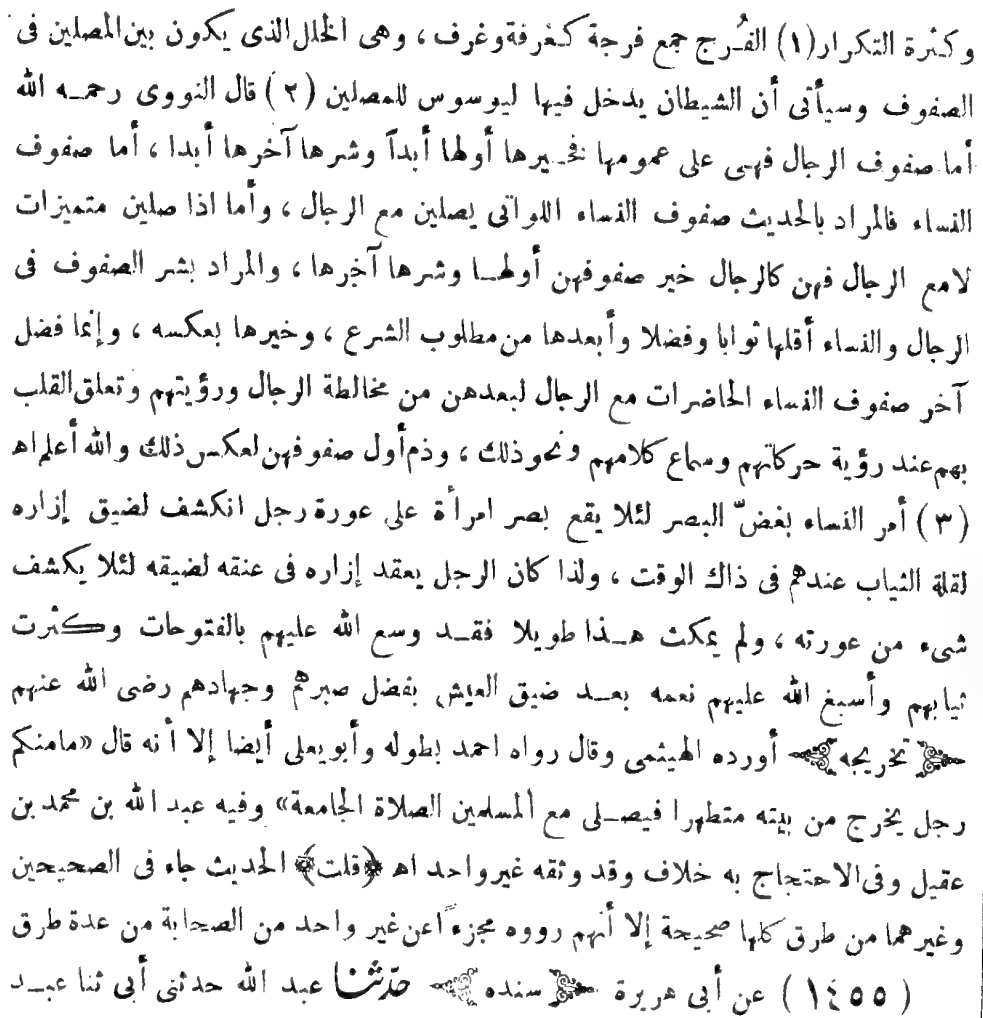 وكثرة التكرار (١) الفُرج جمع فرجة كغرفة وغرف ، وهى الخلل الذى يكون بين المصلين فى
الصفوف وسيأتى أن الشيطان يدخل فيها ليوسوس للمصلين (٢) قال النووى رحمه الله
أما صفوف الرجال فهى على عمومها فخيرها أولها أبداً وشرها آخرها أبدا ، أما صفوف
النساء فالمراد بالحديث صفوف النساء اللواتى يصلين مع الرجال ، وأما اذا صلين متميزات
لامع الرجال فهن كالرجال خير صفوفهن أولها وشرها آخرها ، والمراد بشر الصفوف فى
الرجال والنساء أقلها ثوابا وفضلا وأبعدها من مطلوب الشرع ، وخيرها بعكسه ، وإنما فضل
آخر صفوف النساء الحاضرات مع الرجال لبعدهن من مخالطة الرجال ورؤيتهم وتعلق القلب
بهم عند رؤية حركاتهم وسماع كلامهم ونحو ذلك ، وذم أول صفوفهن لعكس ذلك والله أعلم اهـ
(٣) أمر النساء بغضّ البصر لئلا يقع بصر امرأة على عورة رجل انكشف لضيق إزاره
لقلة الثياب عندهم فى ذاك الوقت ، ولذا كان الرجل يعقد إزاره فى عنقه لضيقه لئلا يكشف
شىء من عورته ، ولم يمكث هذا طويلا فقد وسع الله عليهم بالفتوحات وكثرت
ثيابهم وأسبغ الله عليهم نعمه بعد ضيق العيش بفضل صبرهم وجهادهم رضى الله عنهم
تخريجه أورده الهيثمى وقال رواه احمد بطوله وأبو يعلى أيضا إلا أنه قال «مامنكم
رجل يخرج من بيته متطهرا فيصلى مع المسلمين الصلاة الجامعة» وفيه عبد الله بن محمد بن
عقيل وفى الاحتجاج به خلاف وقد وثقه غير واحد اهـ (قلت) الحديث جاء فى الصحيحين
وغيرهما من طرق كلها صحيحة إلا أنهم رووه مجزءاً عن غير واحد من الصحابة من عدة طرق
(١٤٥٥) عن أبى هريرة سنده حدّثنا عبد الله حدثنى أبى ثنا عبد